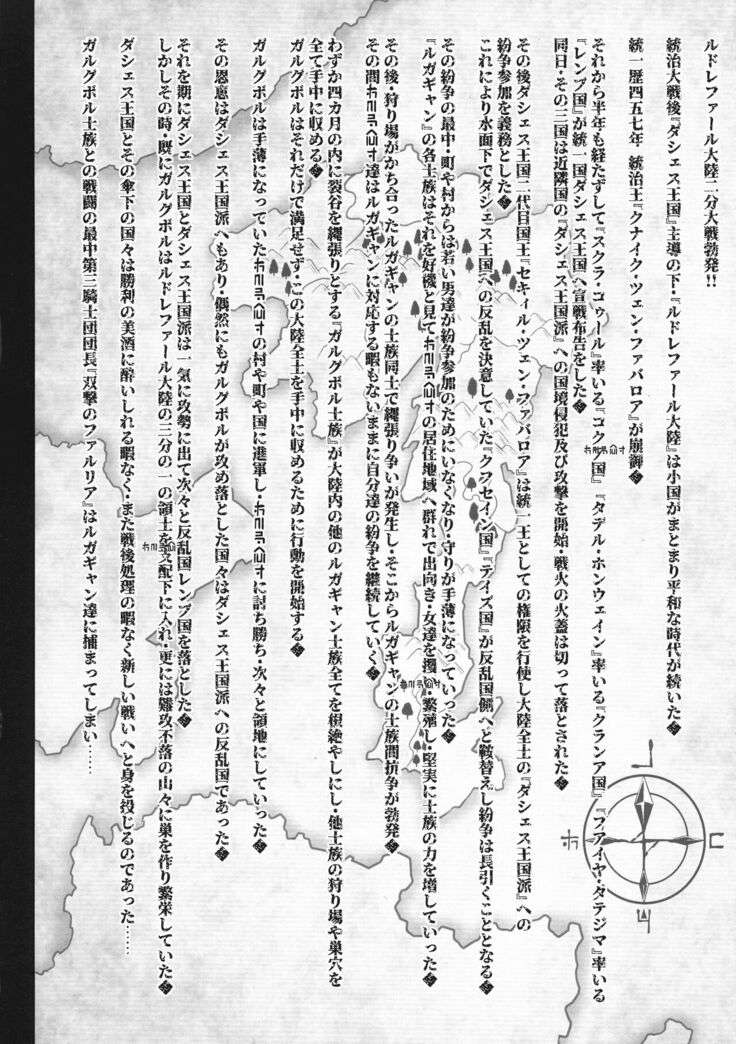 ルドレファール大陸二分大戦勃発!!
統治大戦後『ダシェス王国』主導の下・『ルドレファール大陸』は小国がまとまり平和な時代が続いた
統一暦四五七年 統治王『クナイク・ツェン・ファバロア』が崩御
それから半年も経たずして『スクラ・ゴゥール』率いる『コクン国』『タデル・ホンウェイン』率いる『クランア国』『フアイヤ・タテジマ』率いる
『レンプ国』が統一国ダシェス王国へ宣戦布告をした
同日・その三国は近隣国の『ダシェス王国派』への国境侵犯及び攻撃を開始・戦火の火蓋は切って落とされた
その後ダシェス王国二代目国王『セキィル・ツェン・ファバロア』は統一王としての権限を行使し大陸全土の『ダシェス王国派』への
紛争参加を義務とした
これにより水面下でダシェス王国への反乱を決意していた『クフセイン国』『テイズ国』が反乱国側へと鞍替えし紛争は長引くこととなる
その紛争の最中・町や村からは若い男達が紛争参加のためにいなくなり・守りが手薄になっていった
『ルガギャン』の各士族はそれを好機と見て の居住地域へ群れで出向き・女達を攫い・繁殖し・堅実に士族の力を増していった
その後・狩り場がかち合ったルガギャンの士族同士で縄張り争いが発生し・そこからルガギャンの士族間抗争が勃発
その間 達はルガギャンに対応する暇もないままに自分達の紛争を継続していく
わずか四カ月の内に裂谷を縄張りとする『ガルグボル士族』が大陸内の他のルガギャン士族全てを根絶やしにし・他士族の狩り場や巣穴を
全て手中に収める
ガルグボルはそれだけで満足せず・この大陸全土を手中に収めるために行動を開始する
ガルグボルは手薄になっていた の村や町や国に進軍し・ に討ち勝ち・次々と領地にしていった
その恩恵はダシェス王国派へもあり・偶然にもガルグボルが攻め落とした国々はダシェス王国派への反乱国であった
それを期にダシェス王国とダシェス王国派は一気に攻勢に出て次々と反乱国レンプ国を落とした
しかしその時・既にガルグボルはルドレファール大陸の三分の一の領土を支配下に入れ・更には難攻不落の山々に巣を作り繁栄していた
ダシェス王国とその傘下の国々は勝利の美酒に酔いしれる暇なく・また戦後処理の暇なく新しい戦いへと身を投じるのであった……
ガルグボル士族との戦闘の最中第三騎士団団長『双撃のファルリア』はルガギャン達に捕まってしまい……